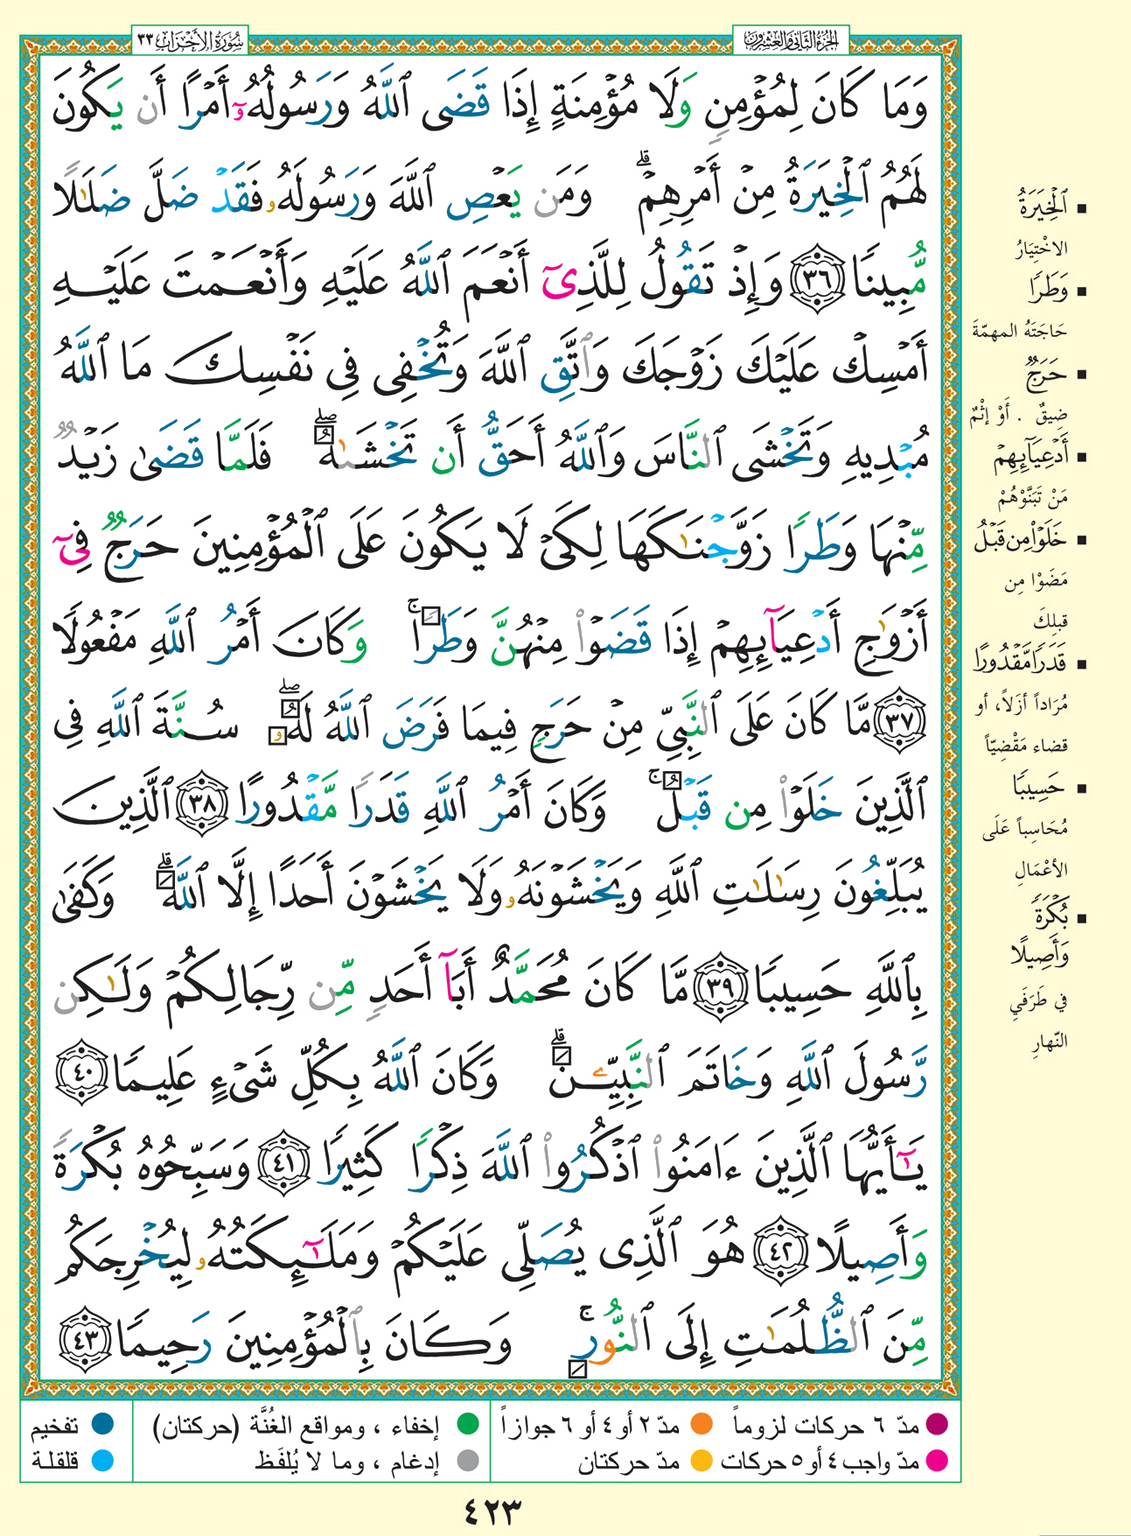 سُورَةُ الأَحْزَاب ٣٣
الجزء الثاني والعشرون
وَمَا كَانَ لِمُؤْمِنٍ وَلَا مُؤْمِنَةٍ إِذَا قَضَى ٱللَّهُ وَرَسُولُهُۥٓ أَمْرًا أَن يَكُونَ
لَهُمُ ٱلْخِيَرَةُ مِنْ أَمْرِهِمْ ۗ وَمَن يَعْصِ ٱللَّهَ وَرَسُولَهُۥ فَقَدْ ضَلَّ ضَلَٰلًا
مُّبِينًا ٣٦ وَإِذْ تَقُولُ لِلَّذِىٓ أَنْعَمَ ٱللَّهُ عَلَيْهِ وَأَنْعَمْتَ عَلَيْهِ
أَمْسِكْ عَلَيْكَ زَوْجَكَ وَٱتَّقِ ٱللَّهَ وَتُخْفِى فِى نَفْسِكَ مَا ٱللَّهُ
مُبْدِيهِ وَتَخْشَى ٱلنَّاسَ وَٱللَّهُ أَحَقُّ أَن تَخْشَىٰهُ ۖ فَلَمَّا قَضَىٰ زَيْدٌ
مِّنْهَا وَطَرًا زَوَّجْنَٰكَهَا لِكَىْ لَا يَكُونَ عَلَى ٱلْمُؤْمِنِينَ حَرَجٌ فِىٓ
أَزْوَٰجِ أَدْعِيَآئِهِمْ إِذَا قَضَوْا۟ مِنْهُنَّ وَطَرًا ۚ وَكَانَ أَمْرُ ٱللَّهِ مَفْعُولًا
٣٧ مَّا كَانَ عَلَى ٱلنَّبِىِّ مِنْ حَرَجٍ فِيمَا فَرَضَ ٱللَّهُ لَهُۥ ۖ سُنَّةَ ٱللَّهِ فِى
ٱلَّذِينَ خَلَوْا۟ مِن قَبْلُ ۚ وَكَانَ أَمْرُ ٱللَّهِ قَدَرًا مَّقْدُورًا ٣٨ ٱلَّذِينَ
يُبَلِّغُونَ رِسَٰلَٰتِ ٱللَّهِ وَيَخْشَوْنَهُۥ وَلَا يَخْشَوْنَ أَحَدًا إِلَّا ٱللَّهَ ۗ وَكَفَىٰ
بِٱللَّهِ حَسِيبًا ٣٩ مَّا كَانَ مُحَمَّدٌ أَبَآ أَحَدٍ مِّن رِّجَالِكُمْ وَلَٰكِن
رَّسُولَ ٱللَّهِ وَخَاتَمَ ٱلنَّبِيِّـۧنَ ۗ وَكَانَ ٱللَّهُ بِكُلِّ شَىْءٍ عَلِيمًا ٤٠
يَٰٓأَيُّهَا ٱلَّذِينَ ءَامَنُوا۟ ٱذْكُرُوا۟ ٱللَّهَ ذِكْرًا كَثِيرًا ٤١ وَسَبِّحُوهُ بُكْرَةً
وَأَصِيلًا ٤٢ هُوَ ٱلَّذِى يُصَلِّى عَلَيْكُمْ وَمَلَٰٓئِكَتُهُۥ لِيُخْرِجَكُم
مِّنَ ٱلظُّلُمَٰتِ إِلَى ٱلنُّورِ ۚ وَكَانَ بِٱلْمُؤْمِنِينَ رَحِيمًا ٤٣
▪ ٱلْخِيَرَةُ
الاخْتِيَارُ
▪ وَطَرًا
حَاجَتَهُ المهمّةَ
▪ حَرَجٌ
ضِيقٌ . أَوْ إثْمٌ
▪ أَدْعِيَآئِهِمْ
مَنْ تَبَنَّوْهُمْ
▪ خَلَوْا۟ مِن قَبْلُ
مَضَوْا مِن
قبلِكَ
▪ قَدَرًا مَّقْدُورًا
مُرَاداً أزَلاً، أو
قضاء مَقْضِيّاً
▪ حَسِيبًا
مُحَاسِباً عَلَى
الأعْمَالِ
▪ بُكْرَةً
وَأَصِيلًا
في طَرَفَيِ
النّهارِ
مدّ ٦ حركات لزوماً
مدّ ٢ أو ٤ أو ٦ جوازاً
إخفاء ، ومواقع الغُنَّة (حركتان)
تفخيم
مدّ واجب ٤ أو ٥ حركات
مدّ حركتان
إدغام ، وما لا يُلفَظ
قلقلة
٤٢٣